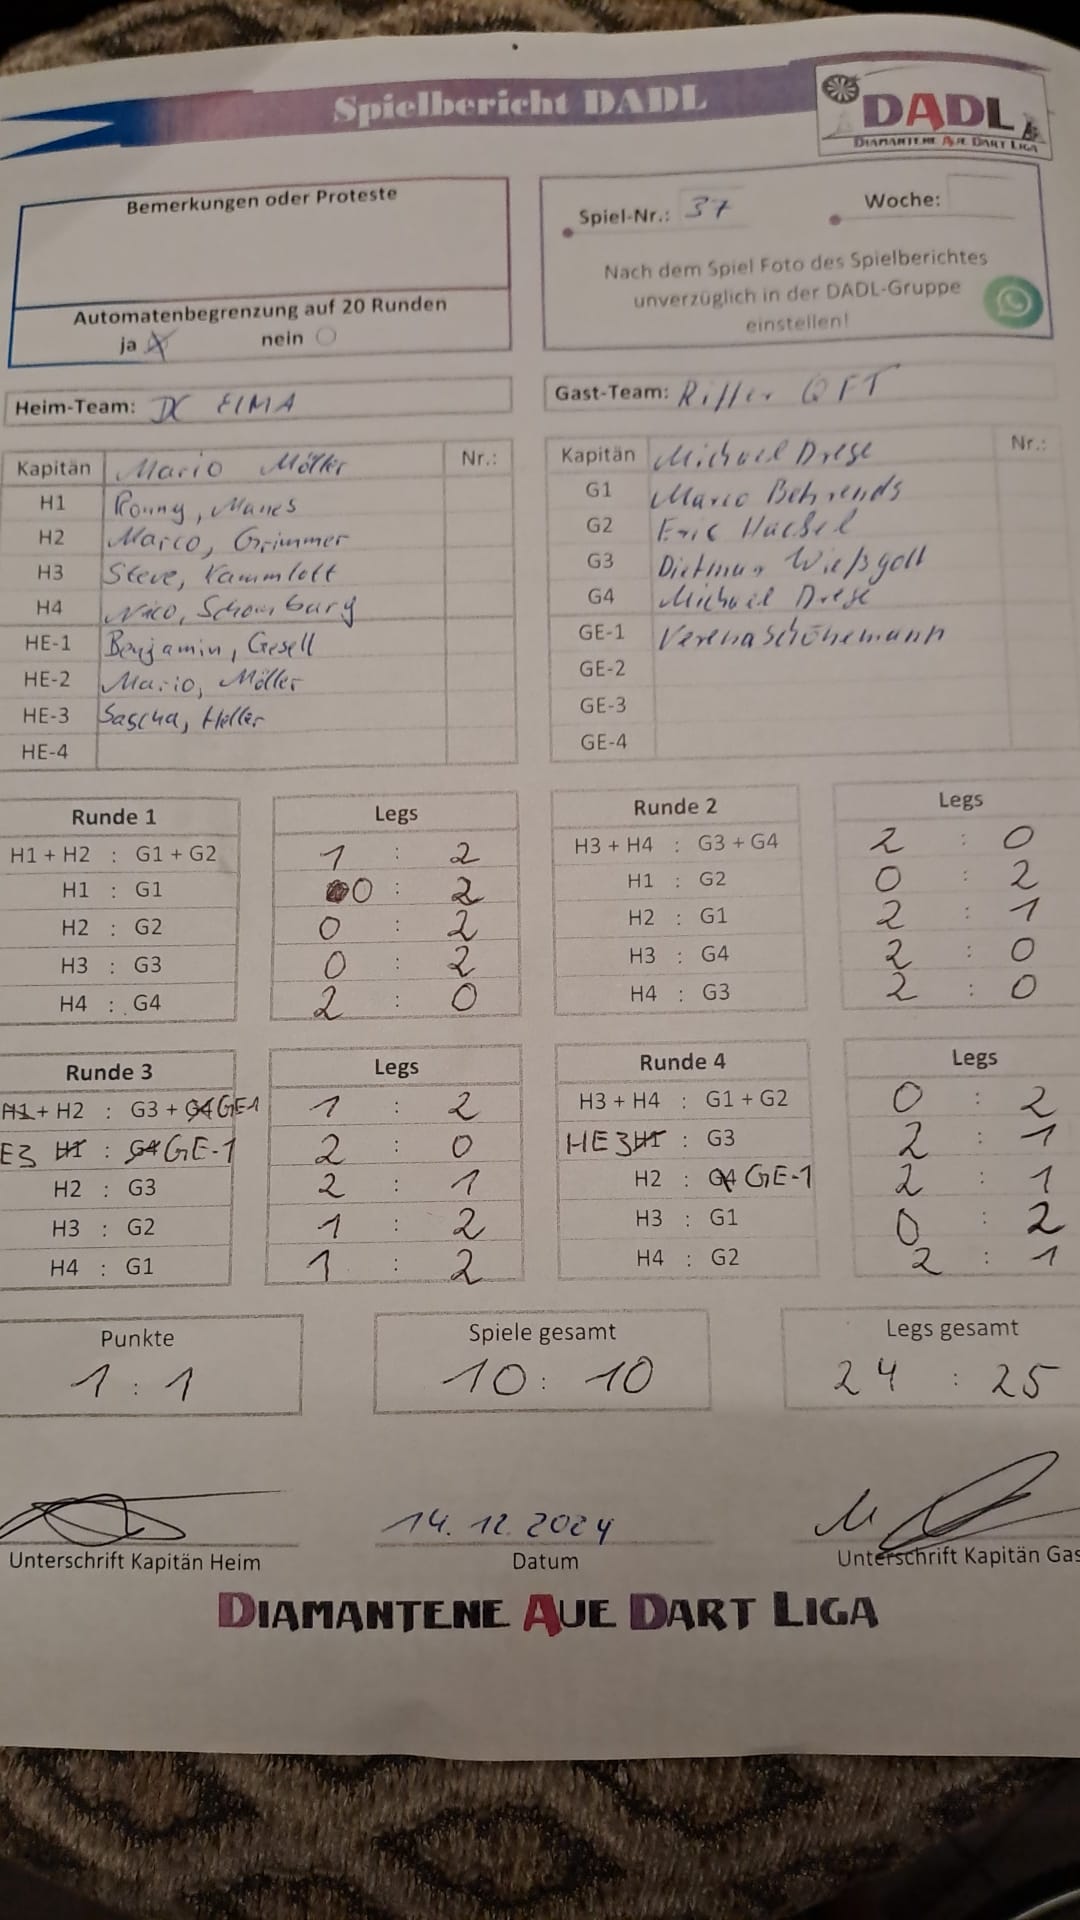 Spielbericht DADL
DADL
DIAMANTENE AUE DART LIGA
Bemerkungen oder Proteste
Automatenbegrenzung auf 20 Runden
ja nein
Spiel-Nr.: 37 Woche:
Nach dem Spiel Foto des Spielberichtes
unverzüglich in der DADL-Gruppe
einstellen!
Heim-Team: DC EIMA
Gast-Team: Ritter QFT
Kapitän Mario Möller Nr.:
H1 Ronny, Manes
H2 Marco, Grimmer
H3 Steve, Kammlott
H4 Nico, Schomburg
HE-1 Benjamin, Gesell
HE-2 Mario, Möller
HE-3 Sascha, Heller
HE-4
Kapitän Michael Drese Nr.:
G1 Marco Behrends
G2 Eric
G3 Dietmar Wießgott
G4 Michael Drese
GE-1 Verena Schönemann
GE-2
GE-3
GE-4
Runde 1 Legs
H1 + H2 : G1 + G2 1 : 2
H1 : G1 0 : 2
H2 : G2 0 : 2
H3 : G3 0 : 2
H4 : G4 2 : 0
Runde 2 Legs
H3 + H4 : G3 + G4 2 : 0
H1 : G2 0 : 2
H2 : G1 2 : 1
H3 : G4 2 : 0
H4 : G3 2 : 0
Runde 3 Legs
H1 + H2 : G3 + G4 GE-1 1 : 2
E3 H1 : G4 GE-1 2 : 0
H2 : G3 2 : 1
H3 : G2 1 : 2
H4 : G1 1 : 2
Runde 4 Legs
H3 + H4 : G1 + G2 0 : 2
HE3 H1 : G3 2 : 1
H2 : G4 GE-1 2 : 1
H3 : G1 0 : 2
H4 : G2 2 : 1
Punkte
1 : 1
Spiele gesamt
10 : 10
Legs gesamt
24 : 25
14.12.2024
Unterschrift Kapitän Heim
Datum
Unterschrift Kapitän Gas
DIAMANTENE AUE DART LIGA